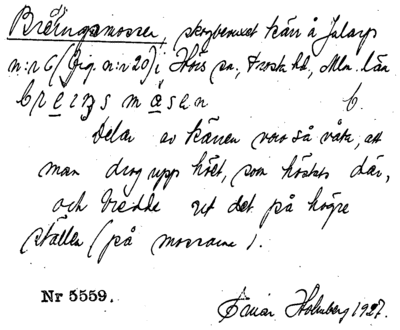 Bredingsmossen, skogbevuxet kärr å Jularp
n:r 6 (fig. n:r 20) i Hörs sn, Frosta hd, Mlm. län
bre̱i̱ŋsmåsen b.
Delar av kärren voro så våta, att
man drog upp höet, som höstats där,
och bredde ut det på högre
ställen (på mossarne).
Nr 5559.
Einar Holmberg 1927.